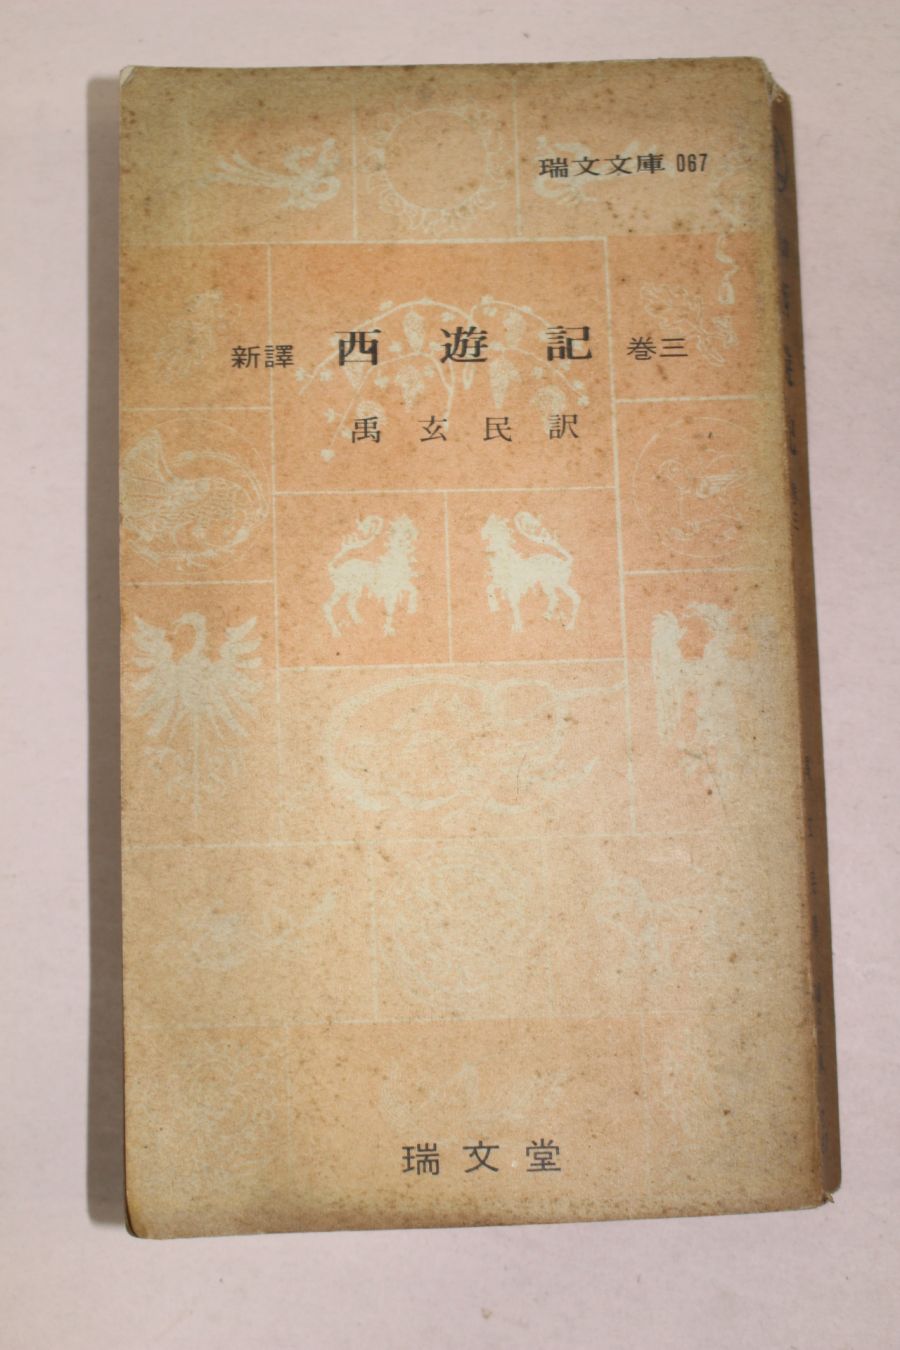 瑞文文庫 067
新譯 西遊記 巻三
禹玄民訳
瑞文堂